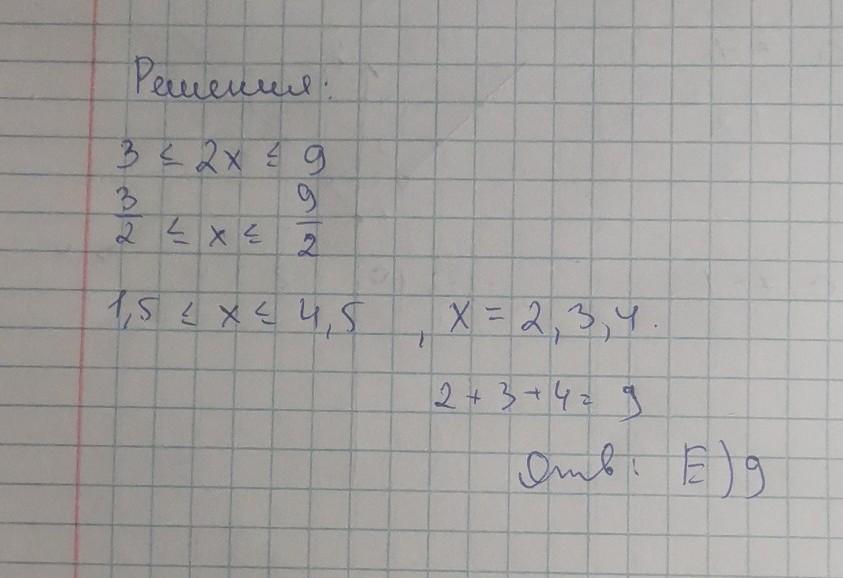 Решения:
3 ≤ 2x ≤ 9
3/2 ≤ x ≤ 9/2
1,5 ≤ x ≤ 4,5 , x = 2,3,4.
2+3+4= 9
Отв: E) 9